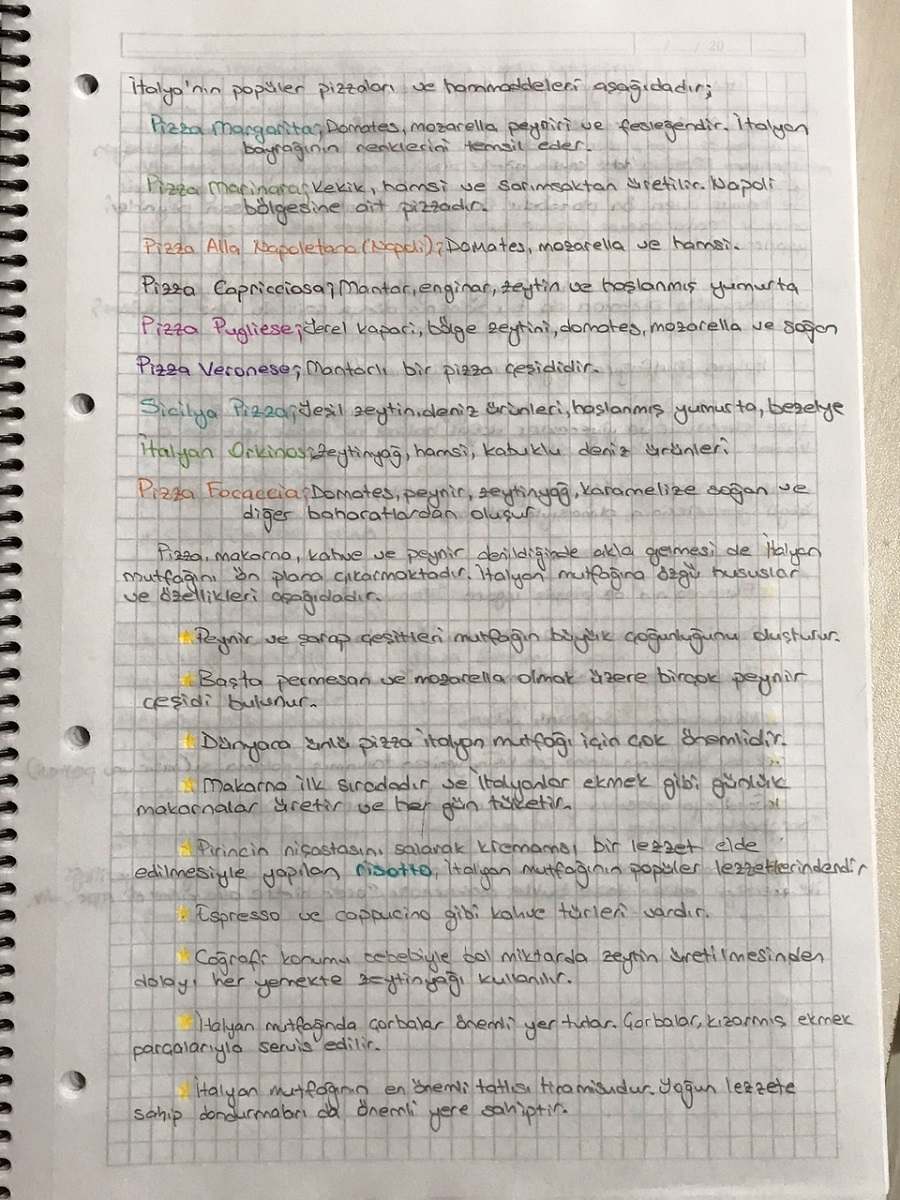 / / 20
İtalya'nın popüler pizzaları ve hammaddeleri aşağıdadır;
Pizza Margarita; Domates, mozarella peyniri ve fesleğendir. İtalyan
bayrağının renklerini temsil eder.
Pizza Marinara; Kekik, hamsi ve sarımsaktan üretilir. Napoli
bölgesine ait pizzadır.
Pizza Alla Napoletana (Napoli); Domates, mozarella ve hamsi.
Pizza Capricciosa; Mantar, enginar, zeytin ve haşlanmış yumurta
Pizza Pugliese; Yerel kapari, bölge zeytini, domates, mozarella ve soğan
Pizza Veronese; Mantarlı bir pizza çeşididir.
Sicilya Pizza; Yeşil zeytin, deniz ürünleri, haşlanmış yumurta, bezelye
İtalyan Orkinos; Zeytinyağ, hamsi, kabuklu deniz ürünleri
Pizza Focaccia; Domates, peynir, zeytinyağ, karamelize soğan ve
diğer baharatlardan oluşur
Pizza, makarna, kahve ve peynir denildiğinde akla gelmesi de İtalyan
mutfağını ön plana çıkarmaktadır. İtalyan mutfağına özgü hususlar
ve özellikleri aşağıdadır.
Peynir ve şarap çeşitleri mutfağın büyük çoğunluğunu oluşturur.
Başta permesan ve mozarella olmak üzere birçok peynir
çeşidi bulunur.
Dünyaca ünlü pizza İtalyan mutfağı için çok önemlidir.
Makarna ilk sıradadır ve İtalyanlar ekmek gibi günlük
makarnalar üretir ve her gün tüketir.
Pirincin nişastasını salarak kremamsı bir lezzet elde
edilmesiyle yapılan risotto, İtalyan mutfağının popüler lezzetlerindendir
Espresso ve cappucino gibi kahve türleri vardır.
Coğrafi konumu sebebiyle bol miktarda zeytin üretilmesinden
dolayı her yemekte zeytinyağı kullanılır.
İtalyan mutfağında çorbalar önemli yer tutar. Çorbalar, kızarmış ekmek
parçalarıyla servis edilir.
İtalyan mutfağının en önemli tatlısı tiramisudur. Yoğun lezzete
sahip dondurmaları da önemli yere sahiptir.